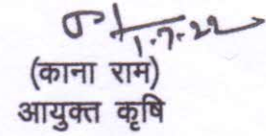 1.7.22
(काना राम)
आयुक्त कृषि